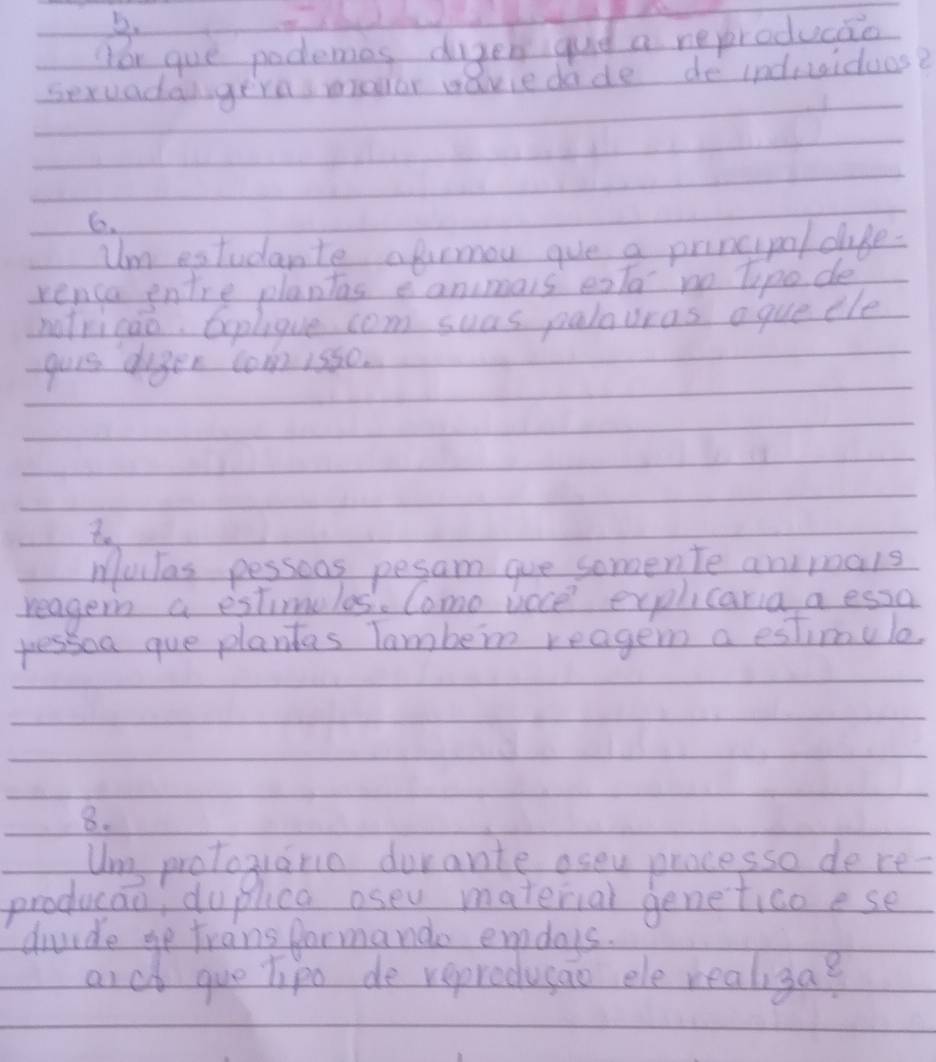 5.
Por que podemos dizer que a reprodução
sexuada gera maior variedade de individuos?
6.
Um estudante afirmou que a principal dife-
rença entre plantas e animais está no tipo de
notrição. Explique com suas palavras o que ele
quis dizer com isso.
7.
Muitas pessoas pesam que somente animais
reagem a estimulos. Como você explicaria a essa
pessoa que plantas Tambem reagem a estimulo.
8.
Um protoziário durante o seu processo de re-
produção, duplica o seu material genetico e se
divide se transformando em dois.
que tipo de reprodução ele realiza?